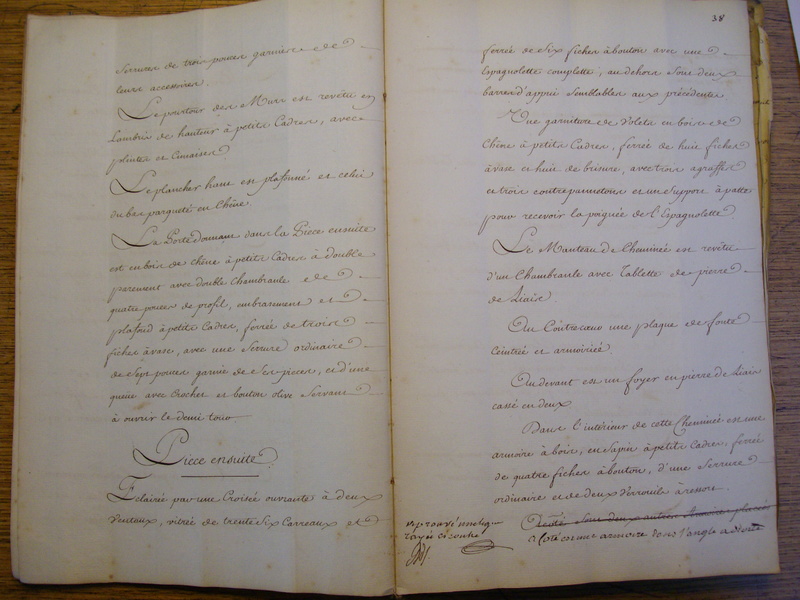 Serrures de trois pouces garnies et de
leurs accessoires.
Le pourtour des Murs est revêtu en
Lambris de hauteur à petits Cadres, avec
plintes et Cimaises
Le plancher haut est plafonné et celui
du bas parqueté en Chêne.
La Porte donnant dans la Piece ensuite
est en bois de chêne à petits Cadres à double
parement avec double Chambranle et de
quatre pouces de profil, embrasement et
plafond à petits Cadres, ferrée de trois
fiches à vase, avec une Serrure ordinaire
de Sept pouces garnie de Ses pieces, et d'une
queue avec Crochet et bouton olive Servant
à ouvrir le demi tour
Piece ensuite
Eclairée par une Croisée ouvrante à deux
Venteaux, vitrée de trente Six Carreaux et
38
ferrée de Six fiches à bouton avec une
Espagnolette complette, au dehors Sont deux
barres d'appui Semblables aux précédentes
Une garniture de Volets en bois de
Chêne à petits Cadres, ferrée de huit fiches
à vase et huit de brisure, avec trois agraffes
et trois contrepannetons et un Support à patte
pour recevoir la poignée de l'Espagnolette.
Le Manteau de Cheminée est revêtu
d'un Chambranle avec Tablette de pierre
de Liais.
Au Contrecœur une plaque de fonte
Ceintrée et armoiriée.
Au devant est un foyer en pierre de Liais
cassé en deux
Dans l'intérieur de cette Cheminée est une
armoire à bois, en Sapin à petits Cadres, ferrée
de quatre fiches à bouton, d'une Serrure
ordinaire et de deux Verrouils à ressort.
Sont deux autres Armoires placées
à Coté est une armoire dans l'angle a droite
approuvé une lig
rayée ci contre